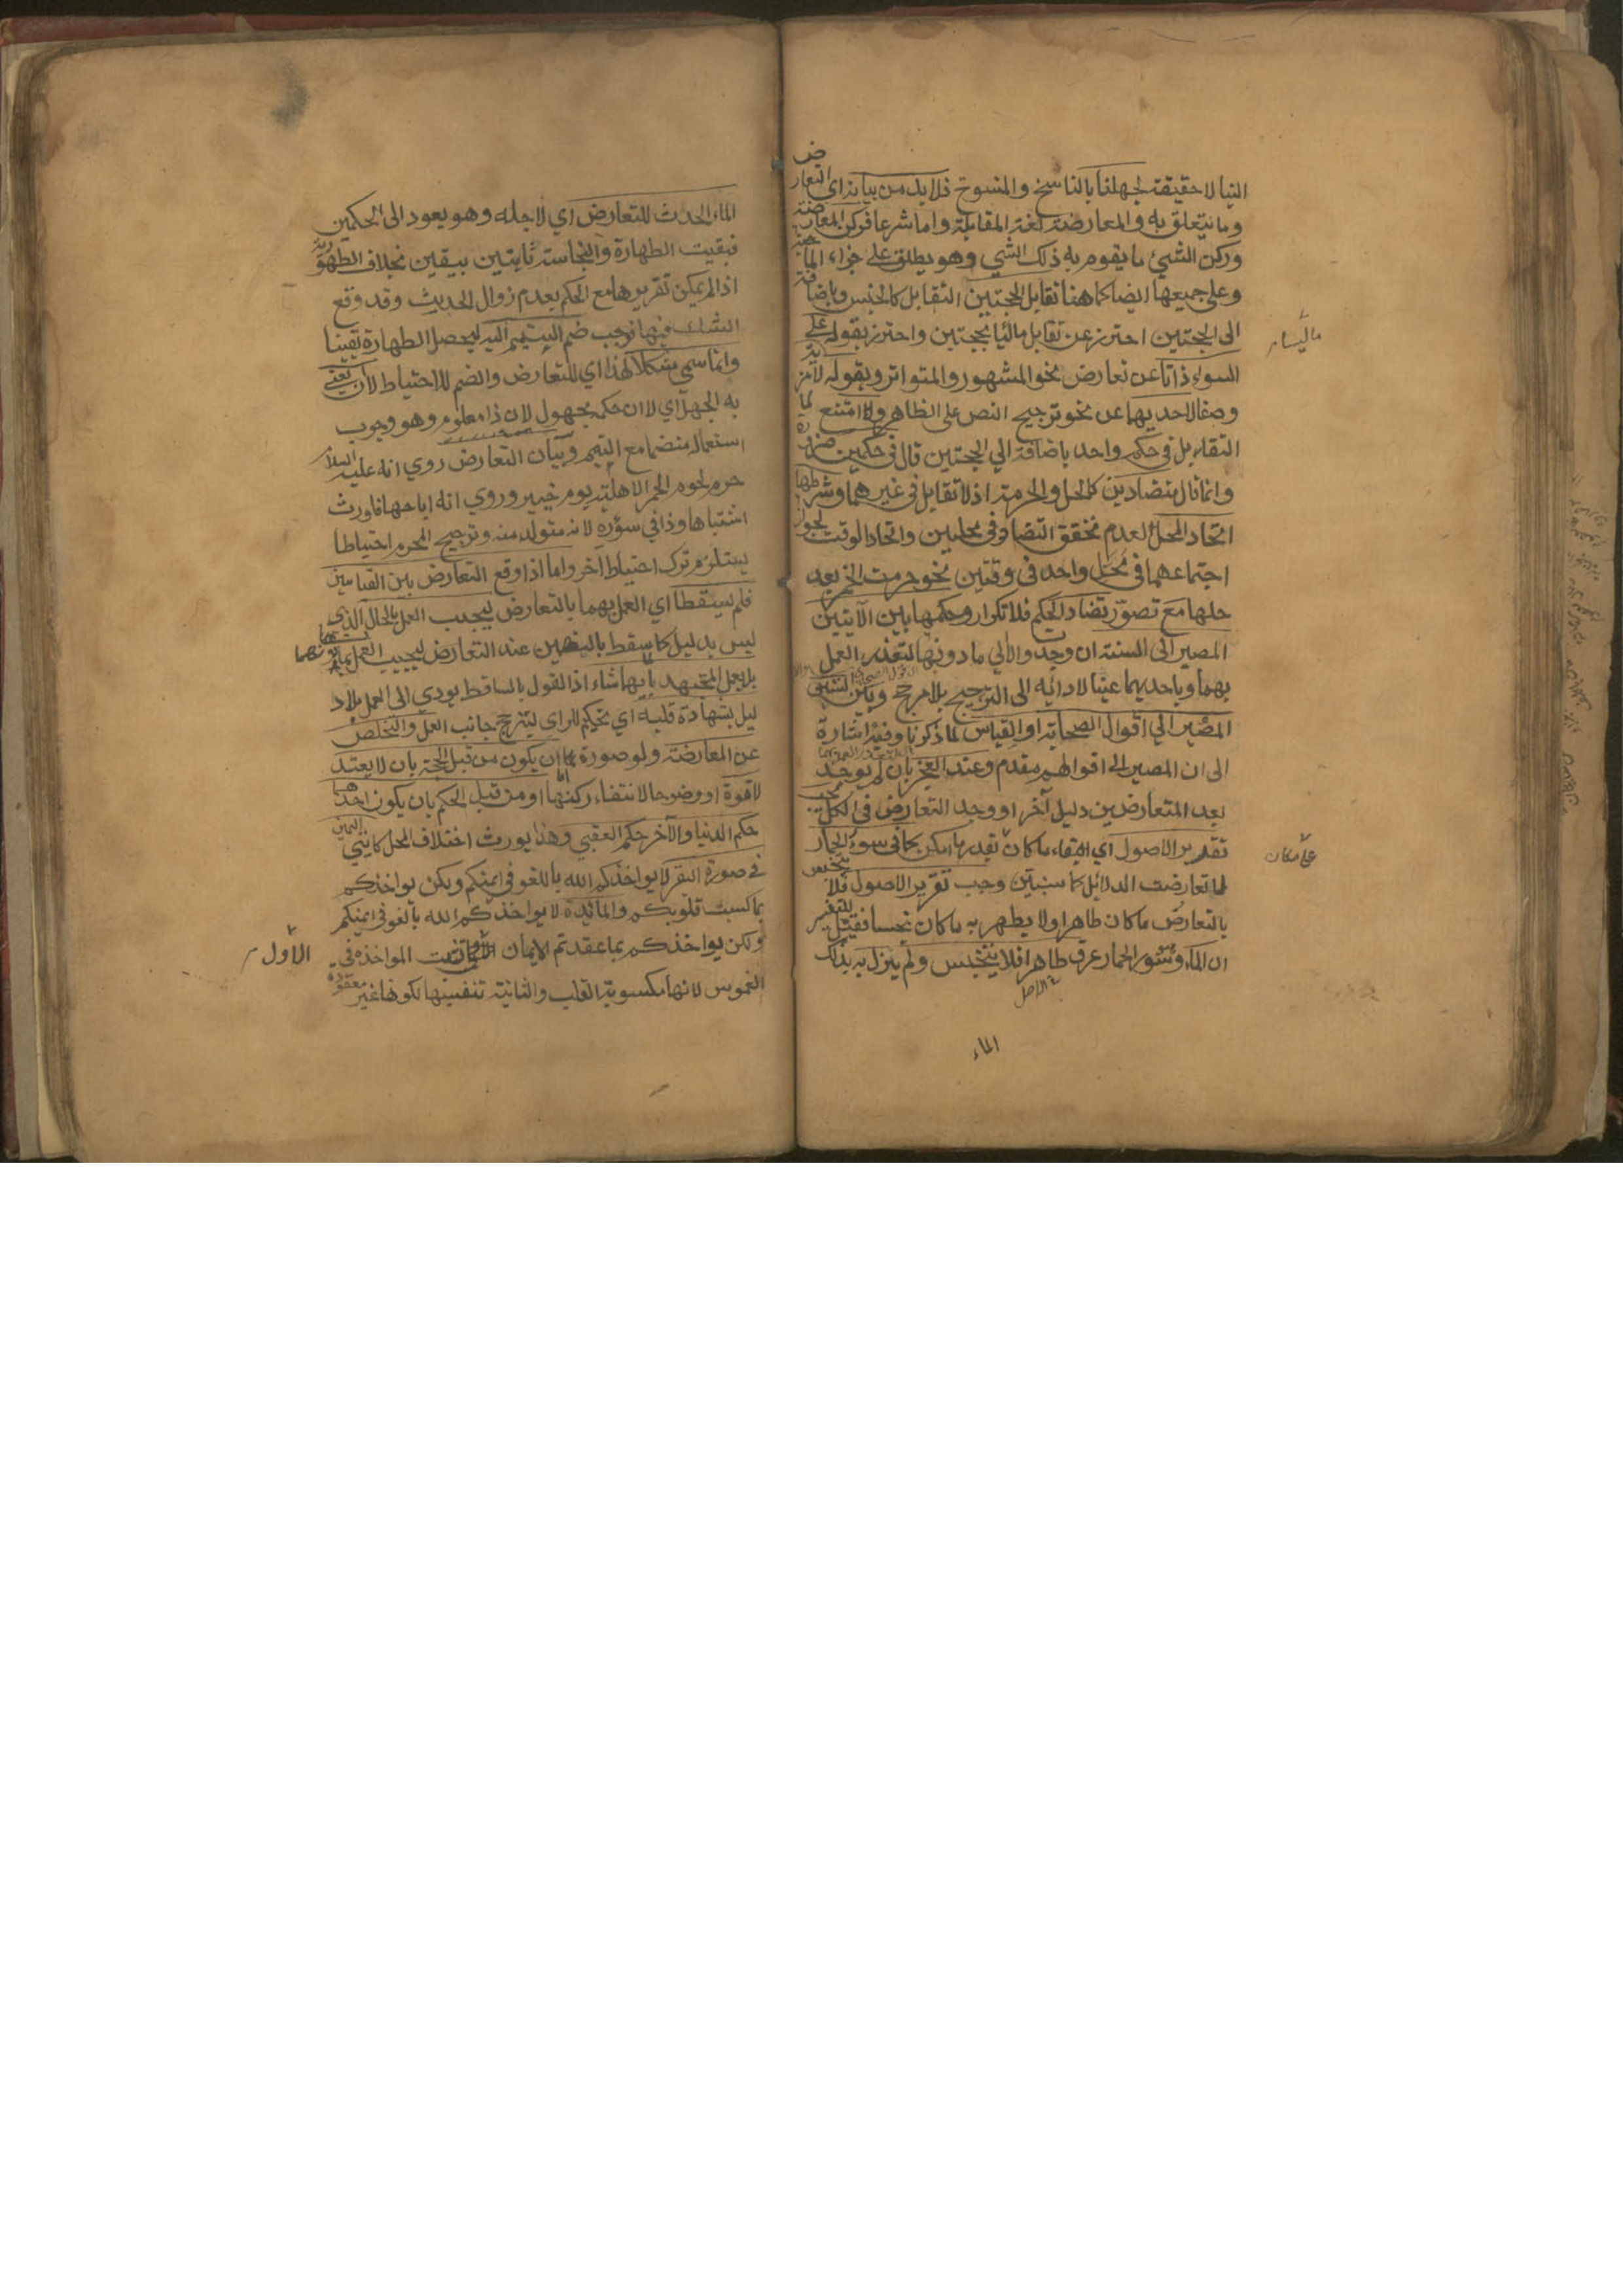 الينا لا حقيقة لجهلنا بالناسخ والمنسوخ فلا بد من بيانه اي التعارض
وما يتعلق به والمعارضة لغة المقابلة واما شرعا فركن المعارضة
وركن الشيء ما يقوم به ذلك الشي وهو يطلق على جزء الماهية
وعلى جميعها ايضا كما هنا تقابل الحجتين التقابل كالجنس وباضافته
الى الحجتين احترز عن تقابل ما ليسا بحجتين واحترز بقوله على
السواء ذاتا عن تعارض نحو المشهور والمتواتر وبقوله لا مزية
وصفا لاحديهما عن نحو ترجيح النص على الظاهر ولما امتنع
التقابل في حكم واحد باضافة الى الحجتين قال في حكمين ضرورة
وانما قال متضادين كالحل والحرمة اذ لا تقابل في غيرهما وشرطها
اتحاد المحل لعدم تحقق التضاد في محلين واتحاد الوقت لجواز
اجتماعهما في محل واحد في وقتين نحو حرمت الخمر بعد
حلها مع تصور تضاد الحكم فلا تكرار وحكمها بين الآيتين
المصير الى السنة ان وجدت والا الى ما دونها لتعذر العمل
بهما وباحديهما عينا لادائه الى الترجيح بلا مرجح وبين السنتين
المصير الى اقوال الصحابة او القياس لما ذكرنا وفيه اشارة
الى ان المصير الى اقوالهم مقدم وعند العجز بان لم يوجد
بعد المتعارضين دليل آخر او وجد التعارض في الكل يجب
تقدير الاصول اي ابقاء ما كان كما في سوء الحمار
على ما كان
لما تعارضت الدلائل كما سنبين وجب تقرير الاصول فلا يتنجس
بالتعارض ما كان طاهرا ولا يطهر به ما كان نجسا فقيل
ان الماء وسور الحمار عرف طاهرا فلا يتنجس ولم يزل به بذلك
في الاصل
الماء
الماء الحدث للتعارض اي لاجله وهو يعود الى الحكمين
فبقيت الطهارة والنجاسة ثابتين بيقين بخلاف الطهورية
اذا لم يمكن تقريرها مع الحكم بعدم زوال الحديث وقد وقع
الشك فيها فوجب ضم التيمم اليه ليحصل الطهارة يقينا
وانما سمي مشكلا لهذا اي للتعارض والضم للاحتياط لا ان يعني
به الجهل اي لا ان حكمه مجهول لان ذا معلوم وهو وجوب
استعماله منضما مع التيمم وبيان التعارض روي انه عليه السلام
حرم لحوم الحمر الاهلية يوم خيبر وروي انه اباحها فاورث
اشتباها وذا في سؤره لانه متولد منه وترجيح المحرم احتياطا
يستلزم ترك احتياط آخر واما اذا وقع التعارض بين القياسين
فلم يسقطا اي العمل بهما بالتعارض ليجب العمل بالحال الذي
ليس بدليل كما سقط بالنصين عند التعارض ليجب العمل بما دونهما
بل يعمل المجتهد بايهما شاء اذ القول بالساقط يودي الى العمل بلا د
ليل بشهادة قلبه اي تحكيم الراي ليترجح جانب العمل والتخلص
عن المعارضة ولو صورة اما ان يكون من قبل الحجة بان لا يعتد
لا قوة او وضوحا لانتفاء ركنها او من قبل الحكم بان يكون احدهما
حكم الدنيا والآخر حكم العقبي وهذا يورث اختلاف المحل كآيتي اليمين
في صورة البقر لا يواخذكم الله باللغو في ايمنكم ولكن يواخذكم
بما كسبت قلوبكم والمائدة لا يواخذكم الله بالغو في ايمنكم
ولكن يواخذكم بما عقدتم الايمان اثبتت المواخذة في
الأول
الغموس لانها مكسوبة القلب والثانية تنفيها لكونها غير معقودة